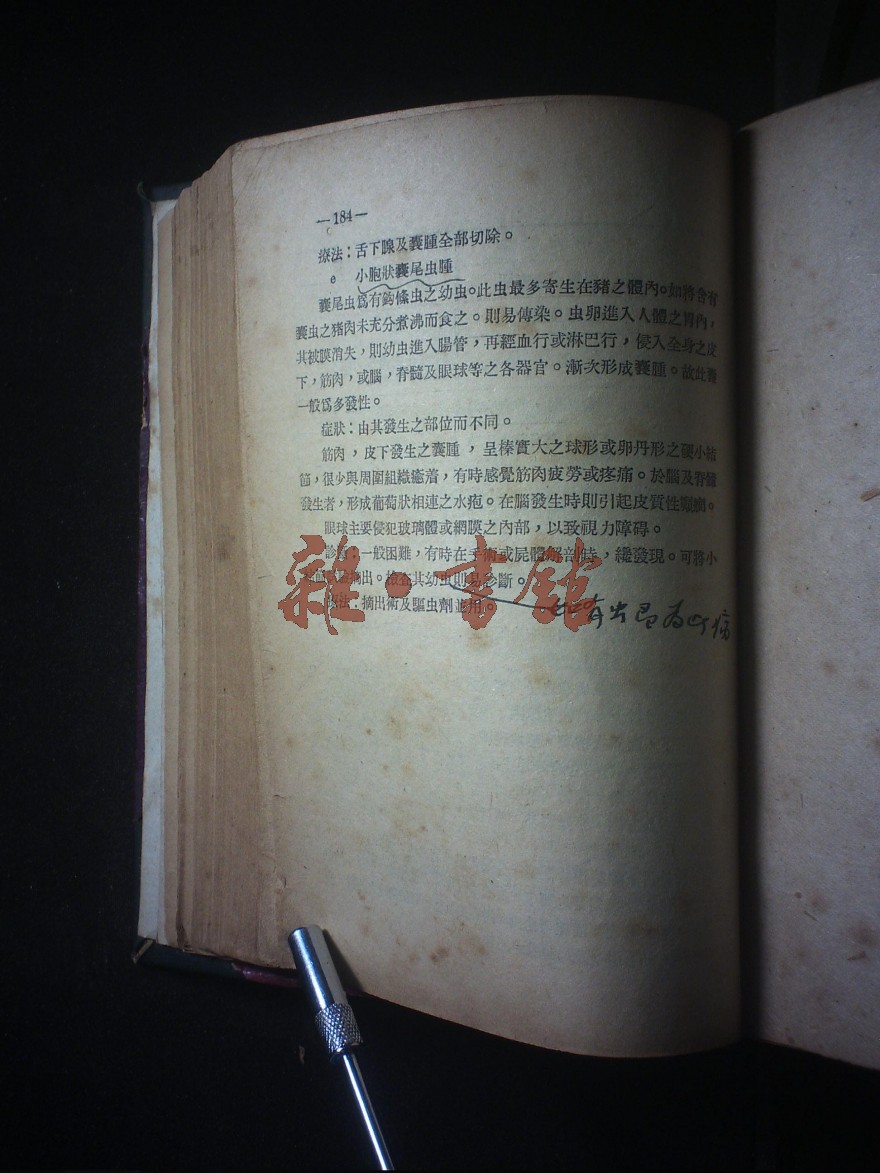 —184—
療法：舌下腺及囊腫全部切除。
e 小胞狀囊尾虫腫
囊尾虫爲有鈎絛虫之幼虫。此虫最多寄生在豬之體內。如將含有
囊虫之猪肉未充分煮沸而食之。則易傳染。虫卵進入人體之胃內，
其被膜消失，則幼虫進入腸管，再經血行或淋巴行，侵入全身之皮
下，筋肉，或腦，脊髓及眼球等之各器官。漸次形成囊腫。故此
一般爲多發性。
症狀：由其發生之部位而不同。
筋肉，皮下發生之囊腫，呈榛實大之球形或卵丹形之硬小結
節，很少與周圍組織癒着，有時感覺筋肉疲勞或疼痛。於腦及脊髓
發生者，形成葡萄狀相連之水疱。在腦發生時則引起皮質性癲癇。
眼球主要侵犯玻璃體或網膜之內部，以致視力障碍。
診斷：一般困難，有時在手術或屍體解剖時，纔發現。可將小
摘出。檢查其幼虫則易診斷。
療法：摘出術及驅虫劑並用。
有虫即為此病
雜·書館